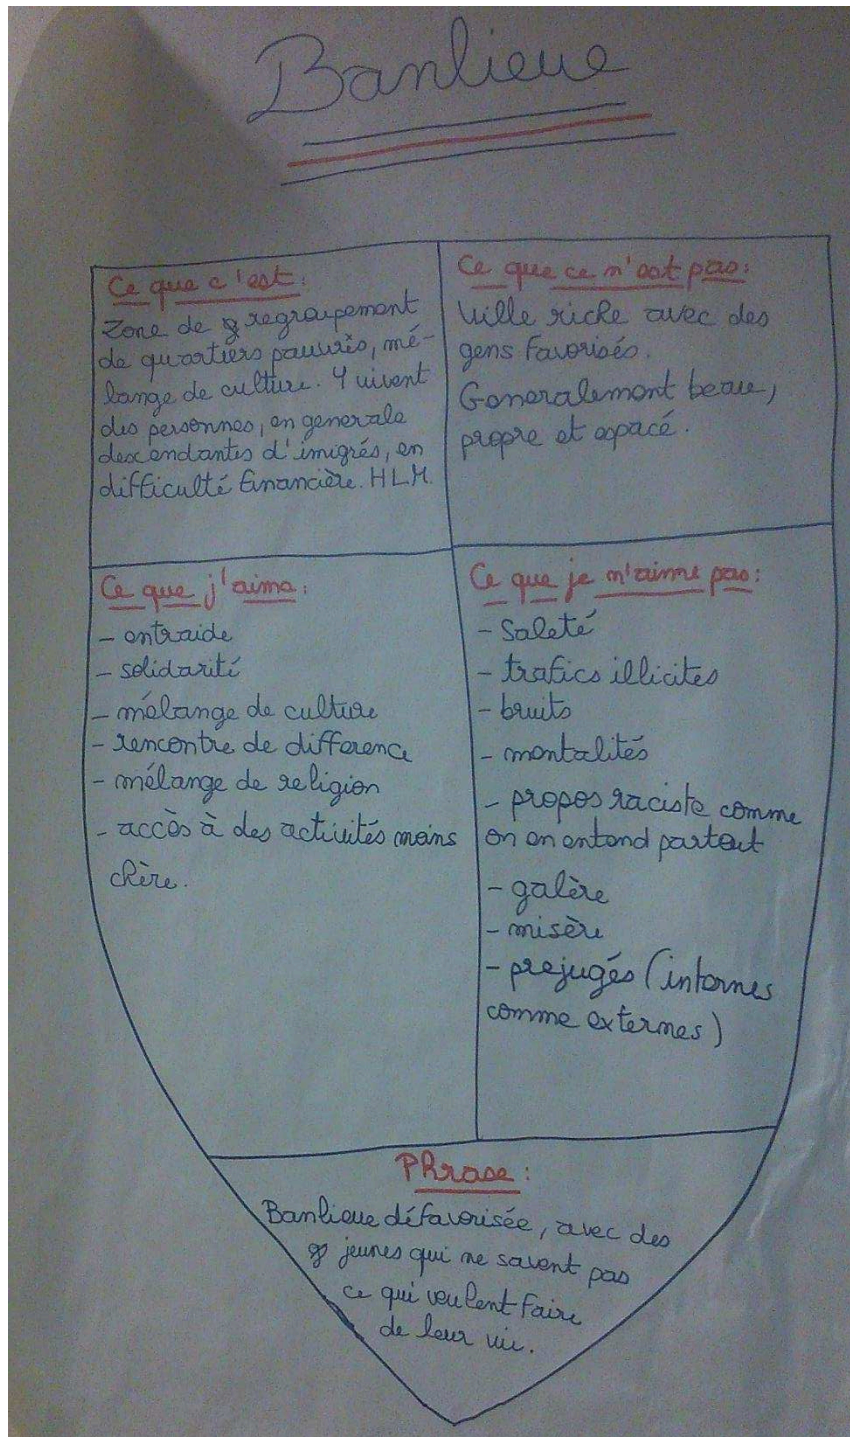 Banlieue
Ce que c'est :
Zone de regroupement
de quartiers pauvres, mé-
lange de culture. Y vivent
des personnes, en generale
descendantes d'imigrés, en
difficulté financière. HLM.
Ce que ce n'est pas :
Ville riche avec des
gens favorisés.
Generalement beau,
propre et espacé.
Ce que j'aime :
- entraide
- solidarité
- mélange de culture
- rencontre de difference
- mélange de religion
- accès à des activités moins
chère.
Ce que je n'aime pas :
- Saleté
- trafics illicites
- bruits
- mentalités
- propos raciste comme
on en entend partout
- galère
- misère
- prejugés (internes
comme externes)
Phrase :
Banlieue défavorisée, avec des
jeunes qui ne savent pas
ce qui veulent faire
de leur vie.